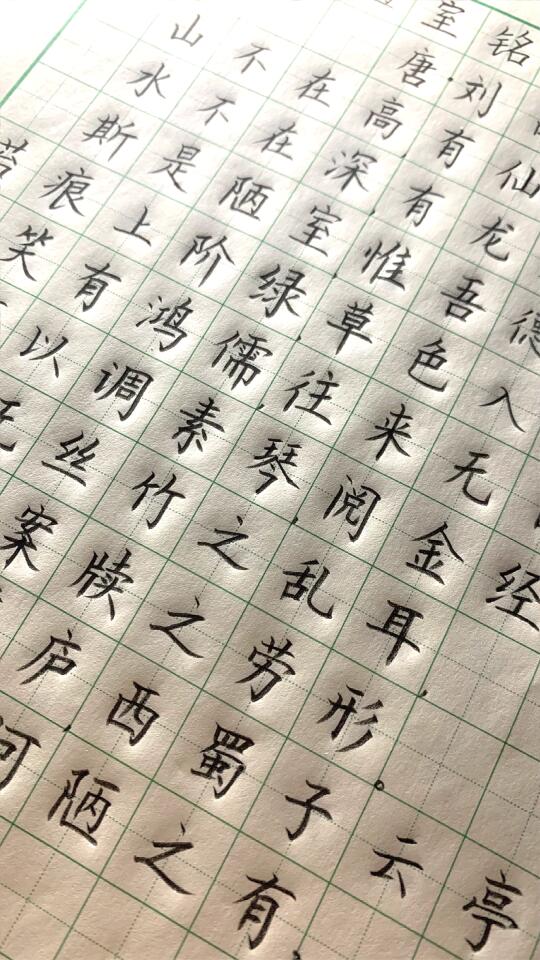 室铭
唐·刘
山不在高,有仙
水不在深,有龙
斯是陋室,惟吾德
痕上阶绿,草色入
笑有鸿儒,往来无
以调素琴,阅金经
无丝竹之乱耳,
案牍之劳形。
庐,西蜀子云亭
何陋之有